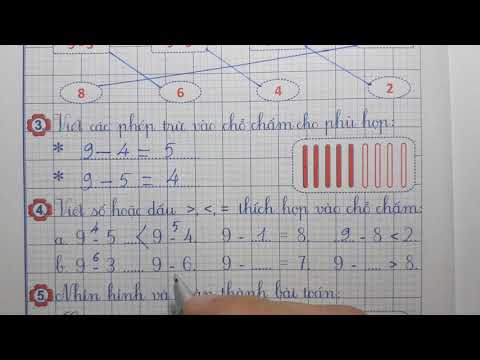 8 6 4 2
3 Viết các phép trừ vào chỗ chấm cho phù hợp:
* 9 – 4 = 5
* 9 – 5 = 4
4 Viết số hoặc dấu >, <, = thích hợp vào chỗ chấm:
4 5
a. 9 - 5 < 9 - 4. 9 - 1 = 8. 9 - 8 < 2.
6
b. 9 - 3 ...... 9 - 6. 9 - ...... = 7. 9 - ...... > 8.
5 Nhìn hình và thành bài toán: